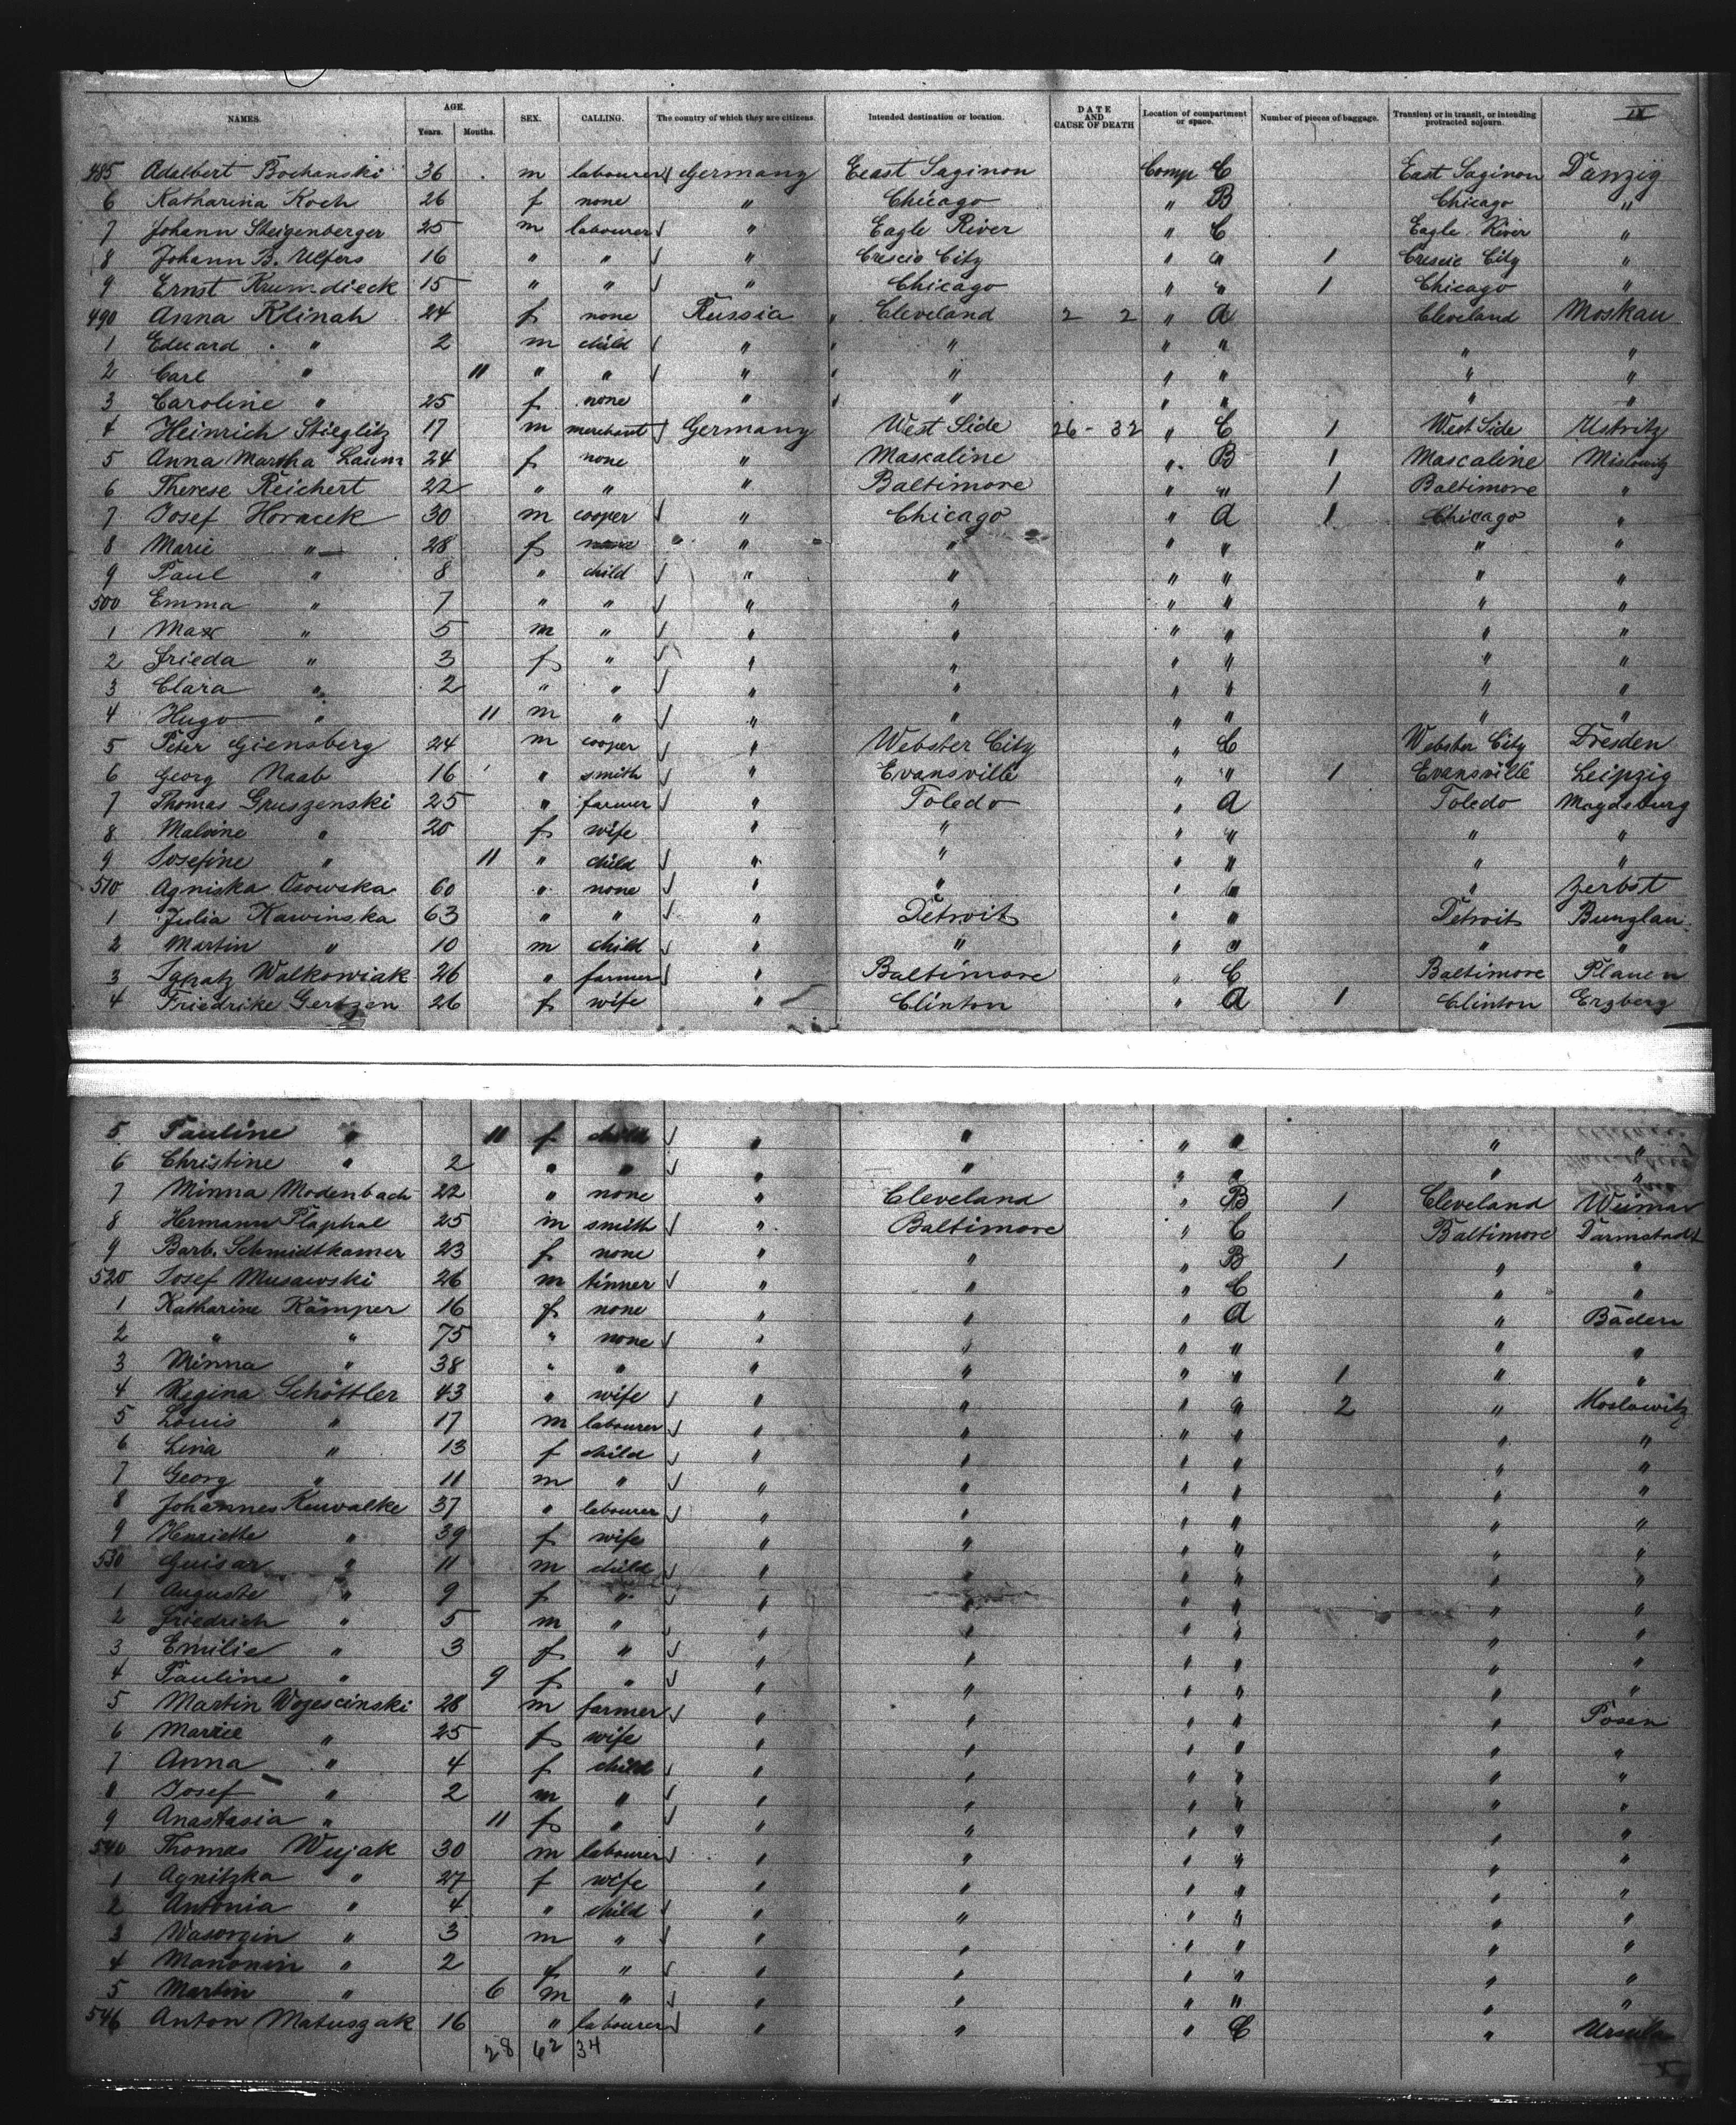 NAMES. AGE. Years. Months. SEX. CALLING. The country of which they are citizens. Intended destination or location. DATE AND CAUSE OF DEATH Location of compartment or space. Number of pieces of baggage. Transient or in transit, or intending protracted sojourn. IX
485 Adalbert Bochanski 36 m labourer Germany East Saginon Comp C East Saginon Danzig
6 Katharina Koch 26 f none " Chicago " B Chicago "
7 Johann Steigenberger 25 m labourer " Eagle River " C Eagle River "
8 Johann B. Ulfers 16 " " " Crescio City " " 1 Crescio City "
9 Ernst Krumdieck 15 " " " Chicago " " 1 Chicago "
490 Anna Klinah 24 f none Russia Cleveland 2 2 " A Cleveland Moskau
1 Eduard " 2 m child " " " " " "
2 Carl " 11 " " " " " " " "
3 Caroline " 25 f none " " " " " "
4 Heinrich Stieglitz 17 m merchant Germany West Side 26 - 32 " C 1 West Side Ustritz
5 Anna Martha Laum 24 f none " Mascaline " B 1 Mascaline Mislowitz
6 Therese Reichert 22 " " " Baltimore " " 1 Baltimore "
7 Josef Horacek 30 m cooper " Chicago " A 1 Chicago "
8 Marie " 28 f none " " " " " "
9 Paul " 8 " child " " " " " "
500 Emma " 7 " " " " " " " "
1 Max " 5 m " " " " " " "
2 Frieda " 3 f " " " " " " "
3 Clara " 2 " " " " " " " "
4 Hugo " 11 m " " " " " " "
5 Peter Giensberg 24 m cooper " Webster City " C Webster City Dresden
6 Georg Naab 16 " smith " Evansville " " 1 Evansville Leipzig
7 Thomas Gruszenski 25 " farmer " Toledo " A Toledo Magdeburg
8 Malvine " 20 f wife " " " " " "
9 Josefine " 11 " child " " " " " "
510 Agniska Osowska 60 " none " " " " " Zerbst
1 Julia Kawinska 63 " " " Detroit " " Detroit Bunzlau
2 Martin " 10 m child " " " " " "
3 Ignatz Walkowiak 26 " farmer " Baltimore " C Baltimore Plauen
4 Friedrike Gertzen 26 f wife " Clinton " A 1 Clinton Erzberg
5 Pauline " 11 f child " " " " " "
6 Christine " 2 " " " " " " " "
7 Minna Modenbach 22 " none " Cleveland " B 1 Cleveland Weimar
8 Hermann Plaphal 25 m smith " Baltimore " C Baltimore Darmstadt
9 Barb. Schmidtkamer 23 f none " " " B 1 " "
520 Josef Musawski 26 m tinner " " " C " "
1 Katharine Kämper 16 f none " " " A " Baden
2 " " 75 " none " " " " " "
3 Minna " 38 " " " " " " 1 " "
4 Regina Schöttler 43 " wife " " " " 2 " Moslowitz
5 Louis " 17 m labourer " " " " " "
6 Lina " 13 f child " " " " " "
7 Georg " 11 m " " " " " " "
8 Johannes Kuwalke 37 " labourer " " " " " "
9 Henriette " 39 f wife " " " " " "
530 Guisar " 11 m child " " " " " "
1 Auguste " 9 f " " " " " " "
2 Friedrich " 5 m " " " " " " "
3 Emilie " 3 f " " " " " " "
4 Pauline " 9 f " " " " " " "
5 Martin Wojescinski 28 m farmer " " " " " Posen
6 Marie " 25 f wife " " " " " "
7 Anna " 4 f child " " " " " "
8 Josef " 2 m " " " " " " "
9 Anastasia " 11 f " " " " " " "
540 Thomas Wujak 30 m labourer " " " " " "
1 Agnitzka " 27 f wife " " " " " "
2 Antonia " 4 " child " " " " " "
3 Wawrzin " 3 m " " " " " " "
4 Mononin " 2 f " " " " " " "
5 Martin " 6 m " " " " " " "
546 Anton Matuszak 16 " labourer " " " C " Ursula
28 62 34
X